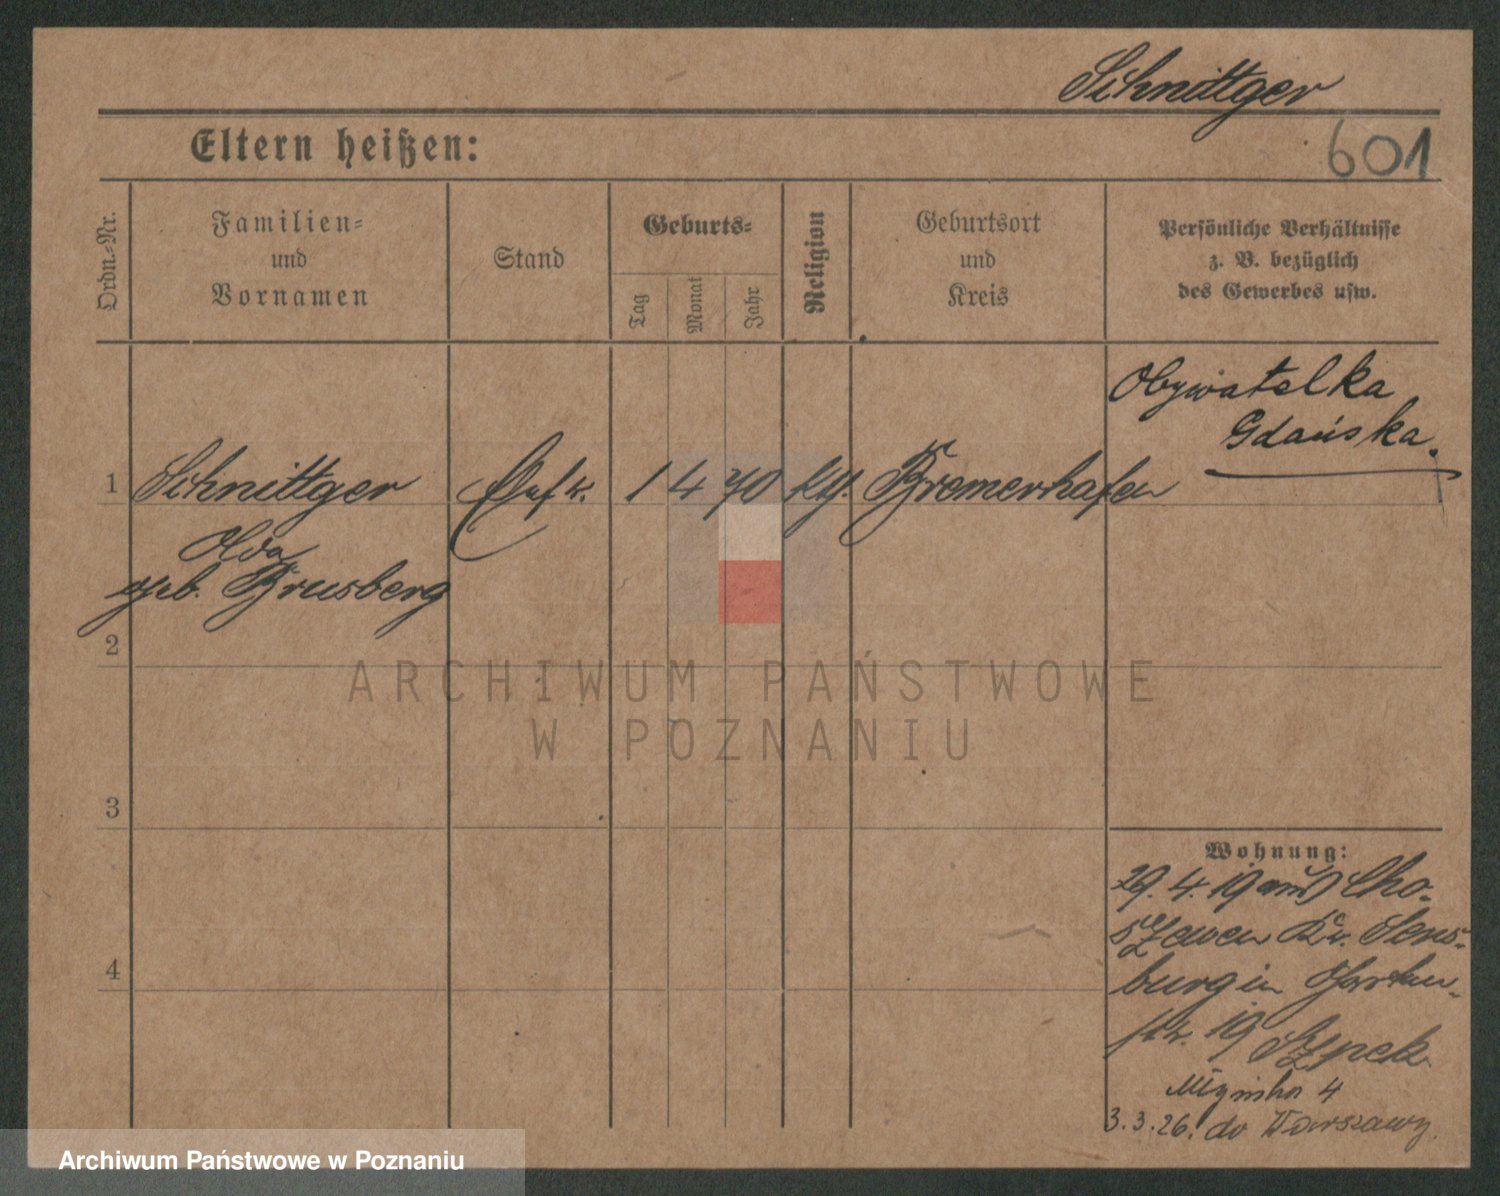 Schnittger
601
Eltern heißen:
Ordn.-Nr.
Familien-
und
Vornamen
Stand
Geburts-
Tag
Monat
Jahr
Religion
Geburtsort
und
Kreis
Persönliche Verhältnisse
z. B. bezüglich
des Gewerbes usw.
Obywatelka
Gdańska.
1 Schnittger 1 4 70 Bremerhafen
Olda
geb. Brusberg
2
3
4
Wohnung:
29. 4. 19 aus Cho-
szewen Kr. Sens-
burg in
str. 19
Młyńska 4
3.3.26. do Warszawy.
ARCHIWUM PAŃSTWOWE
W POZNANIU
Archiwum Państwowe w Poznaniu